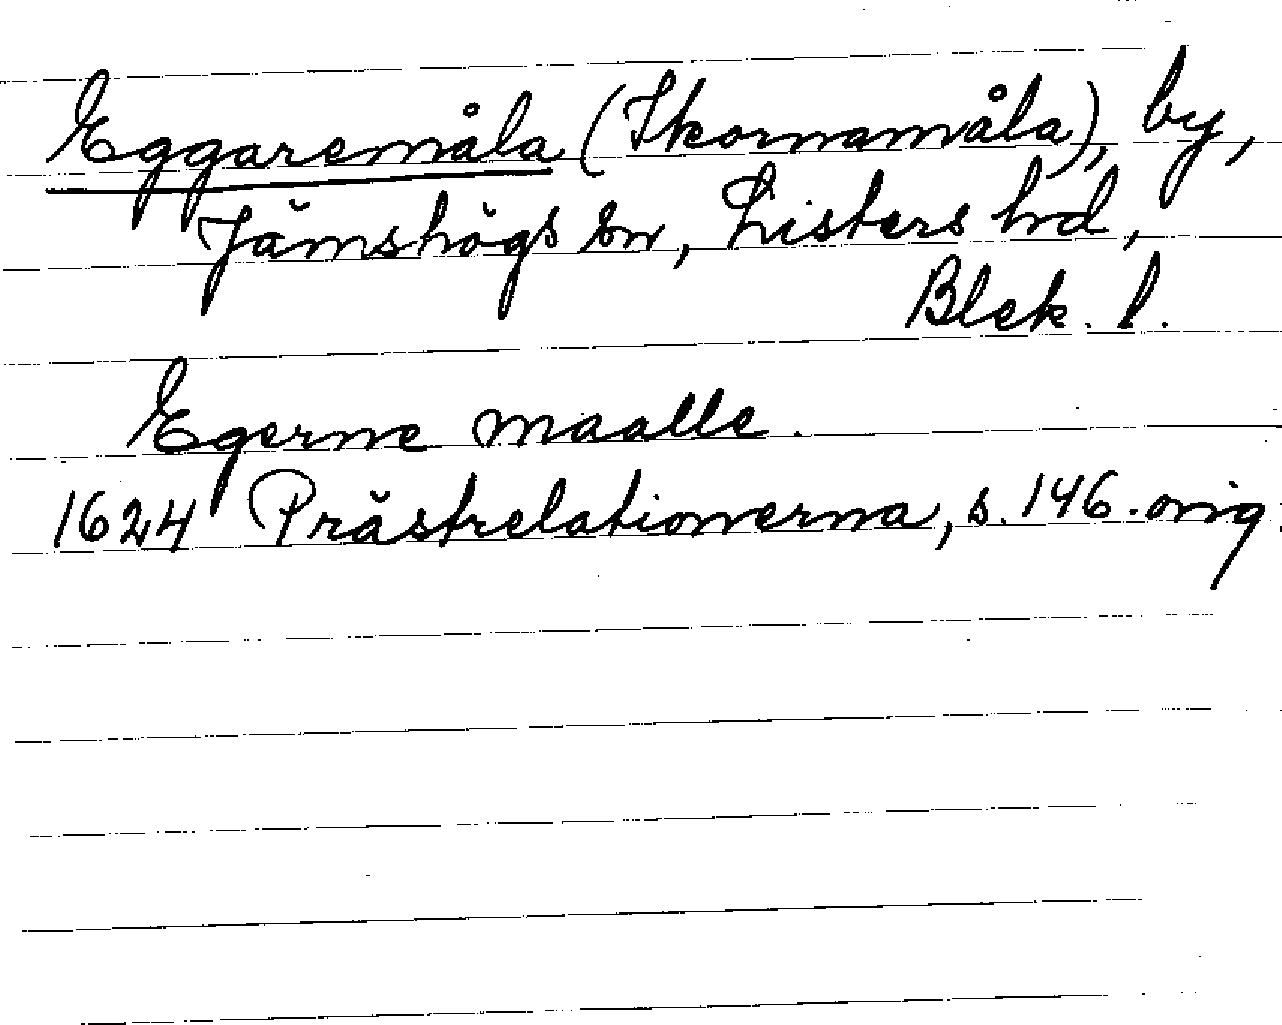 Eggaremåla (Ikornamåla), by,
Jämshögs sn, Listers hd,
Blek. l.
Egerne maalle.
1624 Prästrelationerna, s. 146. orig.